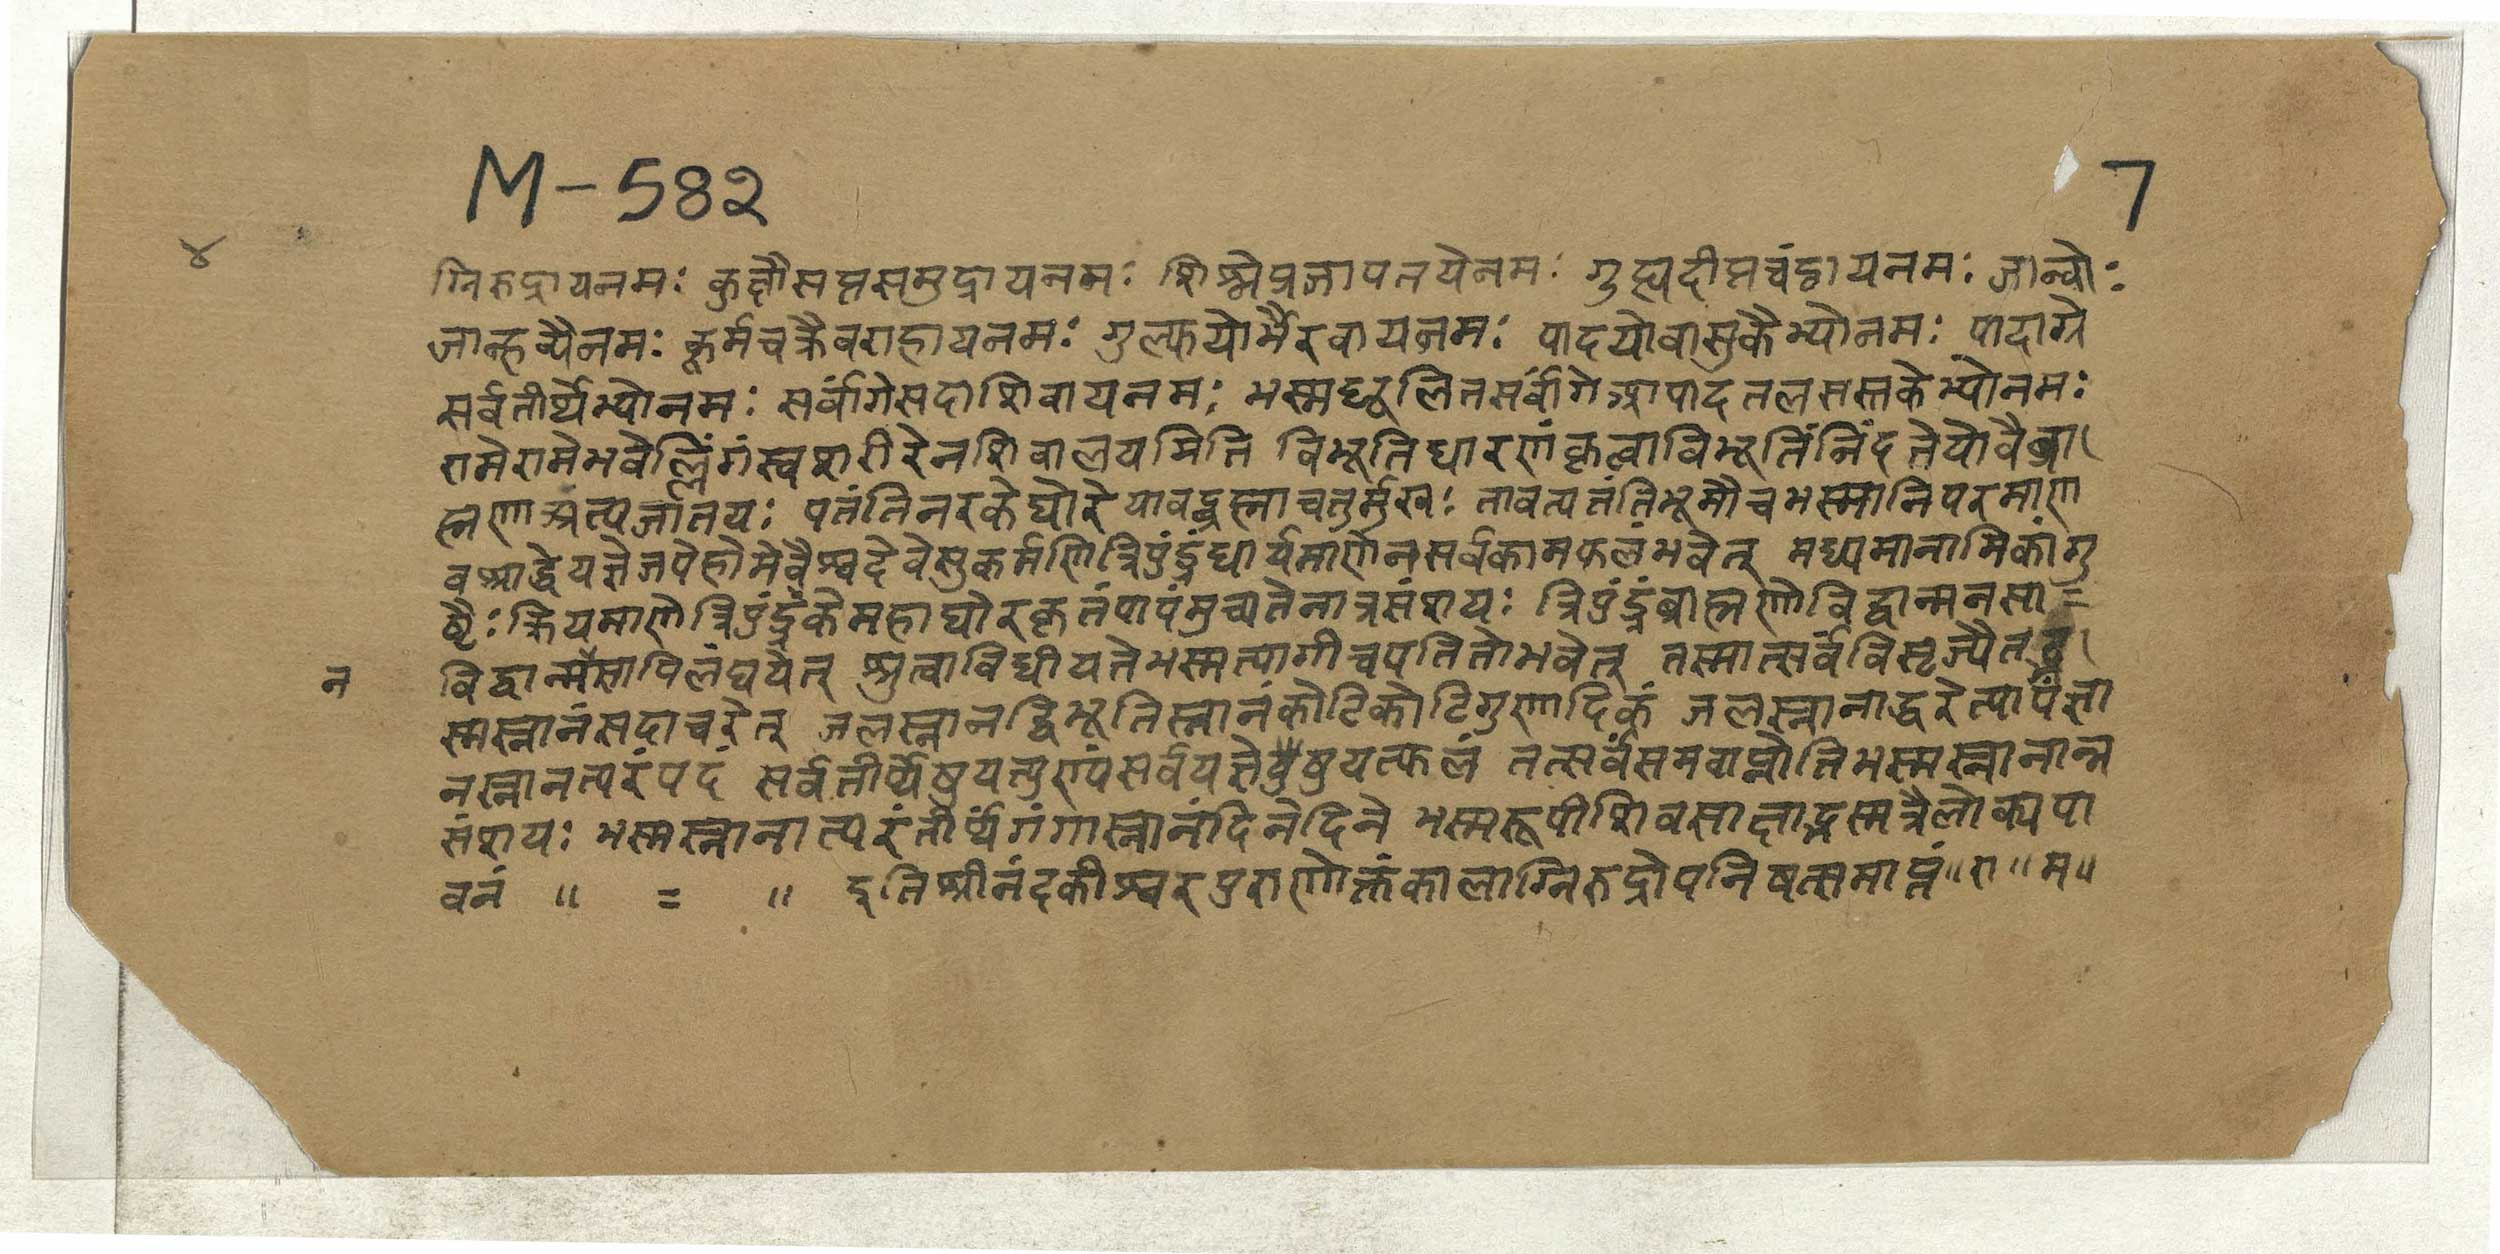 M-582
7
४
ग्निरुद्रायनमः कुक्षौसप्तसमुद्रायनमः शिश्नेप्रजापतयेनमः गुह्यदीप्तचंद्रायनमः जान्वोः
जान्हव्यैनमः कूर्मचक्रैवराहायनमः गुल्फयोर्भैरवायनमः पादयोवासुकैभ्योनमः पादाग्रे
सर्वतीर्थेभ्योनमः सर्वांगेसदाशिवायनमः भस्मधूलितसर्वांगेआपादतलमस्तकेभ्योनमः
रामेरामेभवेल्लिंगंस्वशरीरेनशिवालयमिति विभूतिधारणंकृत्वाविभूतिंनिंदतेयोवैब्रा
ह्मणाअंत्यर्जातयः पतंतिनरकेघोरे यावद्ब्रह्माचतुर्मुखः तावत्पतंतिभूमौचभस्मानिपरमाण
वश्राद्धेयज्ञेजपेहोमेवैश्वदेवेसुकर्मणित्रिपुंड्रंधार्यमाणेनसर्वकामफलंभवेत् मध्यमानामिकांगु
ष्ठैः क्रियमाणेत्रिपुंड्रंकेमहाघोरकृतंपापंमुच्यतेनात्रसंशयः त्रिपुंड्रंब्राह्मणोविद्वान्मनसा=
न विद्वान्मसापिलंघयेत् श्रुत्वाविधीयतेभस्मत्यागीचपतितोभवेत् तस्मात्सर्वंविसृज्यैत
स्मस्नानंसदाचरेत् जलस्नानद्विभूतिस्नानंकोटिकोटिगुणादिकं जलस्नानाद्धरेत्पापंज्ञा
नस्नानत्परंपदं सर्वतीर्थेषुयत्पुण्यंसर्वयज्ञेषुषुयत्फलं तत्सर्वंसमवाप्नोतिभस्मस्नानान्न
संशयः भस्मस्नानात्परंतीर्थंगंगास्नानंदिनेदिने भस्मरूपीशिवसाक्षाद्भस्मत्रैलोक्यपा
वनं ॥ = ॥ इतिश्रीनंदकीश्वरपुराणोक्तंकालाग्निरुद्रोपनिषत्समाप्तं॥रा॥म॥